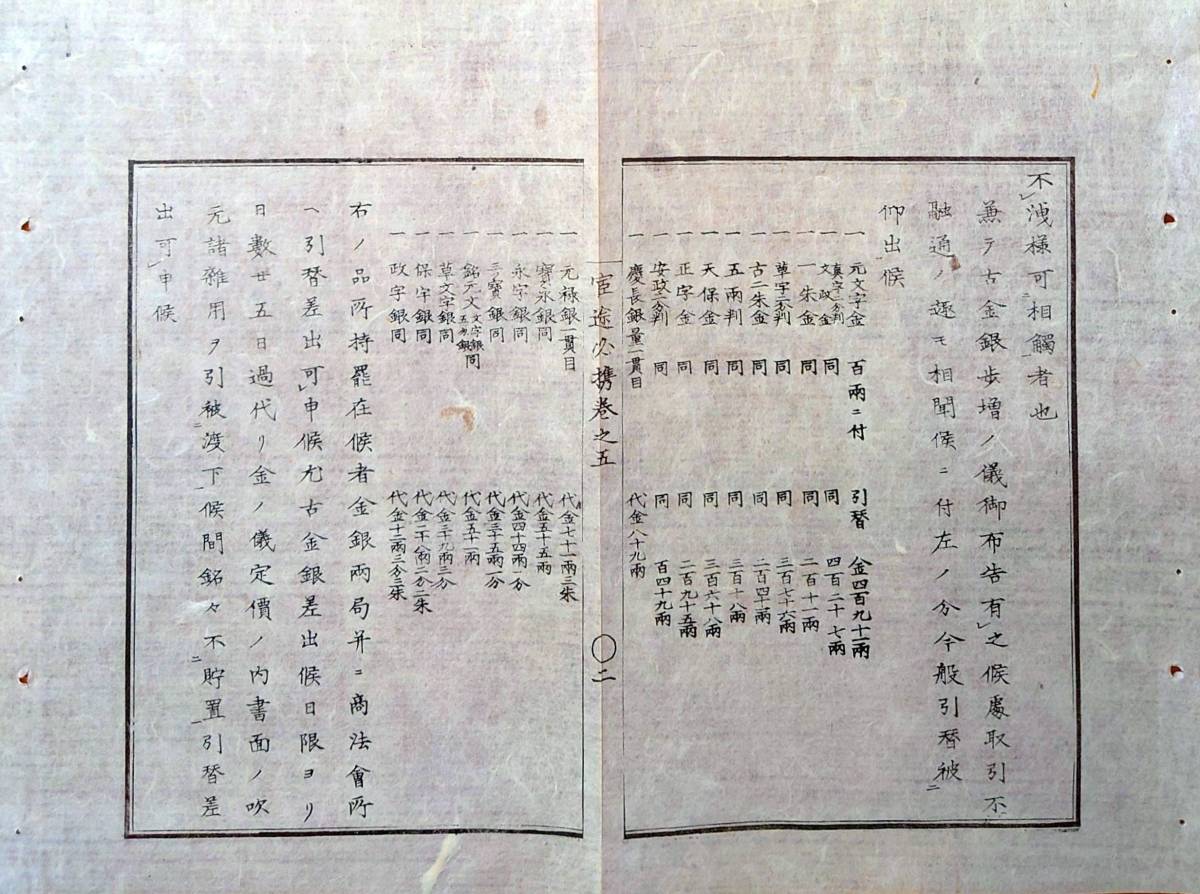 不洩様可相觸者也
兼テ古金銀歩増ノ儀御布告有之候處取引不
融通ノ趣モ相聞候ニ付左ノ分今般引替被
仰出候
一 元文字金 百兩ニ付 引替 金四百九十一兩
一 真字二分判 文政金 同 同 四百二十七兩
一 一朱金 同 同 二百十一兩
一 草字二分判 同 同 三百七十六兩
一 古二朱金 同 同 二百四十二兩
一 五兩判 同 同 三百十八兩
一 天保金 同 同 三百六十八兩
一 正字金 同 同 二百九十五兩
一 安政二分判 同 同 百四十九兩
一 慶長銀量一貫目 代金八十九兩
宦途必携巻之五 〇二
一 元禄銀一貫目 代金七十一兩三朱
一 寳永銀同 代金五十五兩
一 永字銀同 代金四十四兩一分
一 三寳銀同 代金三十五兩一分
一 銘元文 文字銀 五匁銀 同 代金五十一兩
一 草文字銀同 代金三十九兩三分
一 保字銀同 代金二十八兩二分二朱
一 政字銀同 代金十二兩三分三朱
右ノ品所持罷在候者金銀兩局并ニ商法會所
ヘ引替差出可申候尤古金銀差出候日限ヨリ
日數廿五日過代リ金ノ儀定價ノ内書面ノ吹
元諸雜用ヲ引被渡下候間銘々不貯置引替差
出可申候